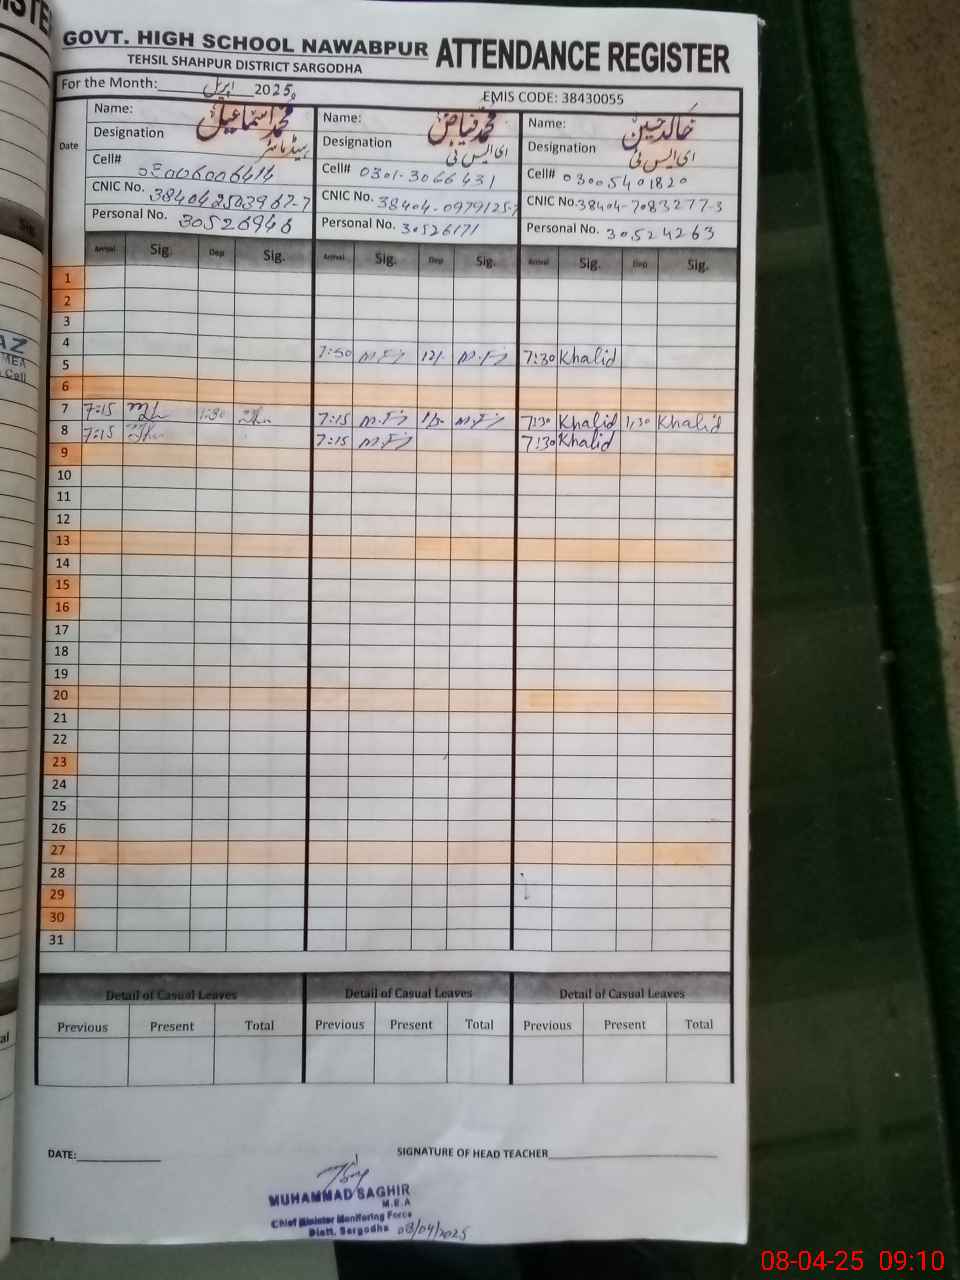 GOVT. HIGH SCHOOL NAWABPUR ATTENDANCE REGISTER
TEHSIL SHAHPUR DISTRICT SARGODHA
For the Month: اپریل 2025ء
EMIS CODE: 38430055
Date
Name: محمد اسماعیل
Designation ہیڈ ماسٹر
Cell# 03006006414
CNIC No. 384042503967-7
Personal No. 30526946
Name: محمد فیاض
Designation ای ایس ٹی
Cell# 0301-3066431
CNIC No. 38404-0979125-7
Personal No. 30526171
Name: خالد حسین
Designation ای ایس ٹی
Cell# 03005401820
CNIC No. 38404-7083277-3
Personal No. 30524263
Arrival Sig. Dep Sig. Arrival Sig. Dep Sig. Arrival Sig. Dep Sig.
1
2
3
4
5 7:50 12/- 7:30 Khalid
6
7 7:15 1:30 7:15 1/30 7:30 Khalid 1:30 Khalid
8 7:15 7:15 7:30 Khalid
9
10
11
12
13
14
15
16
17
18
19
20
21
22
23
24
25
26
27
28
29
30
31
Detail of Casual Leaves Detail of Casual Leaves Detail of Casual Leaves
Previous Present Total Previous Present Total Previous Present Total
DATE:
SIGNATURE OF HEAD TEACHER
MUHAMMAD SAGHIR
M.E.A
Chief Minister Monitoring Force
Distt. Sargodha 08/04/2025
08-04-25 09:10